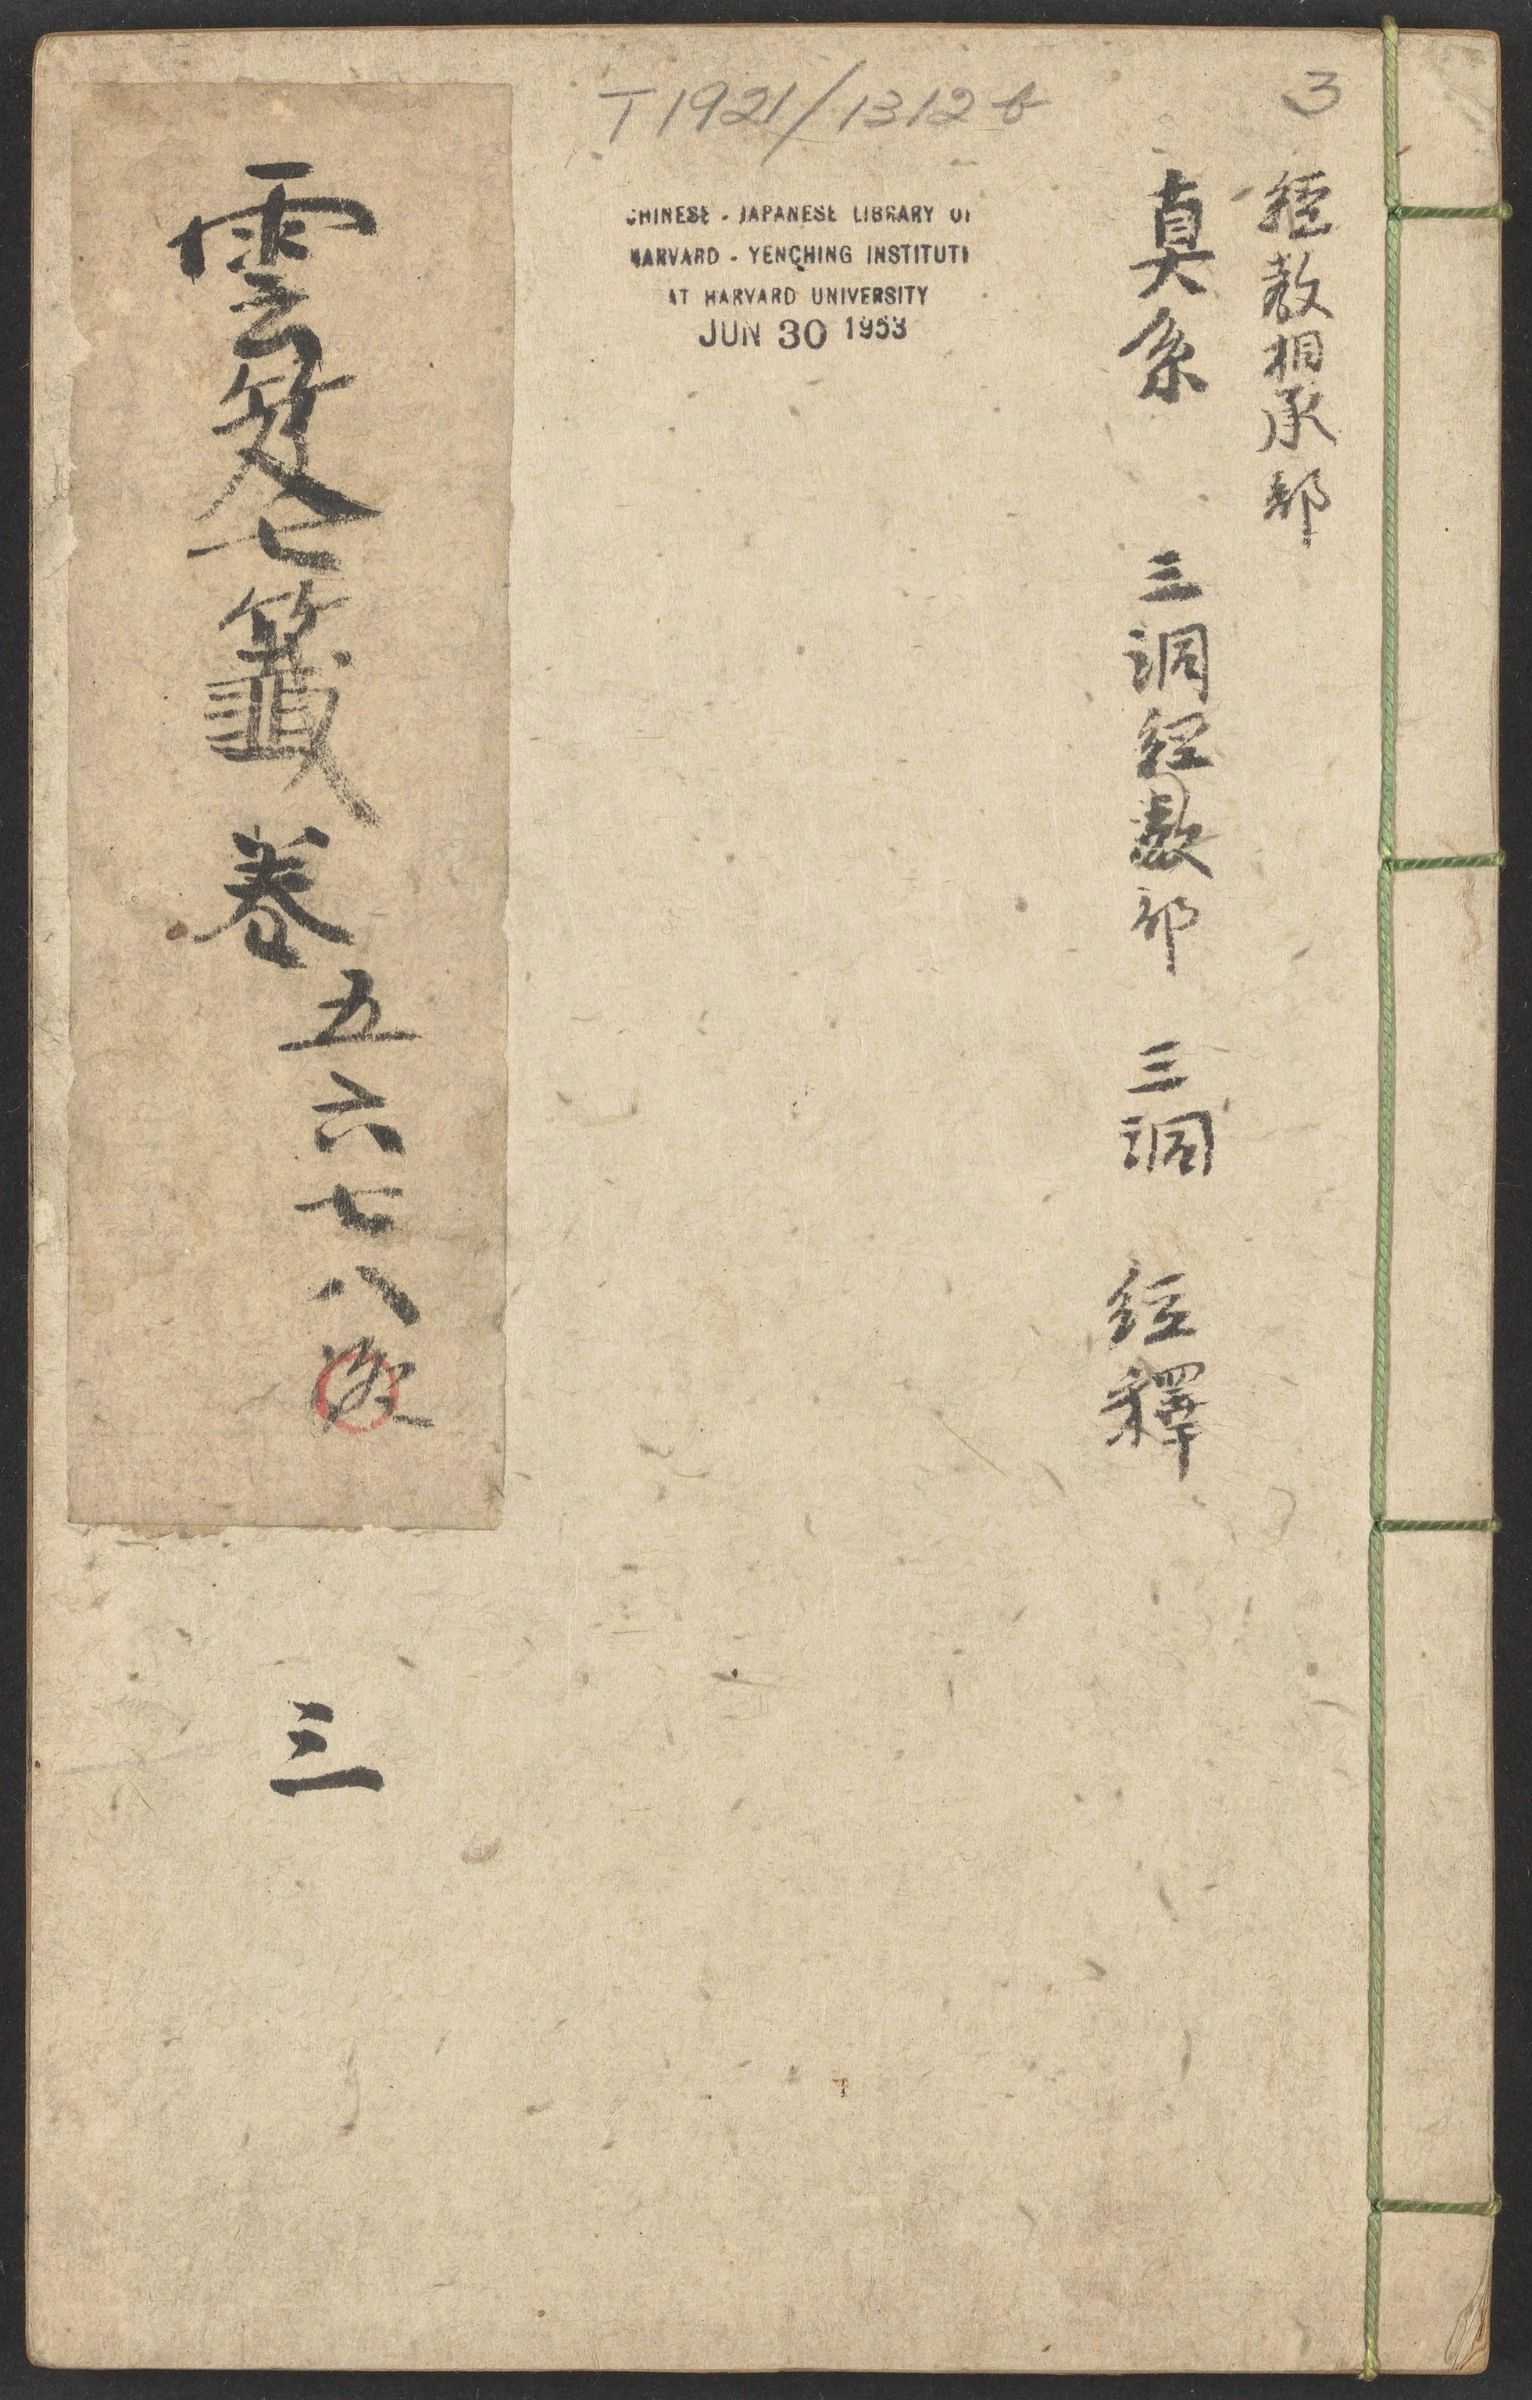 T1921/1312b
3
CHINESE - JAPANESE LIBRARY OF
HARVARD - YENCHING INSTITUTE
AT HARVARD UNIVERSITY
JUN 30 1953
經教相承部
真系 三洞經教部 三洞 經釋
雲笈七籤卷五六七八
三